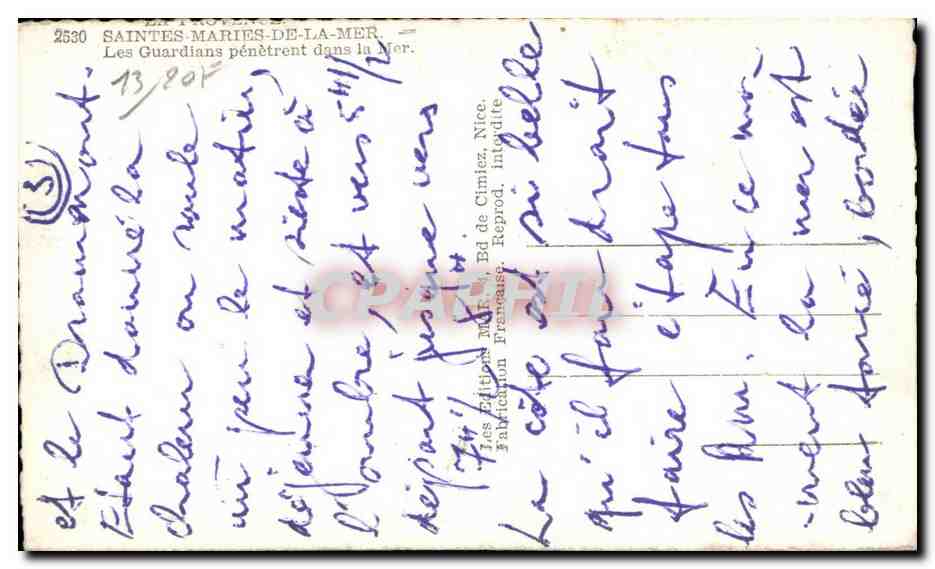 LA PROVENCE.
2530 SAINTES-MARIES-DE-LA-MER. -
Les Guardians pénètrent dans la Mer.
13/20F
(3)
et le Dramamont.
Etant donné la
chaleur on roule
un peu le matin,
déjeuner et sieste à
l'ombre, et vers 5H1/2
départ jusque vers
7H 8H
Les Editions MAR, Bd de Cimiez, Nice.
Fabrication Française. Reprod. interdite
La côte est si belle
qu'il faudrait
faire étape tous
les km. En ce mo-
-ment la mer est
bleu foncé, bordée
CPAPHIL